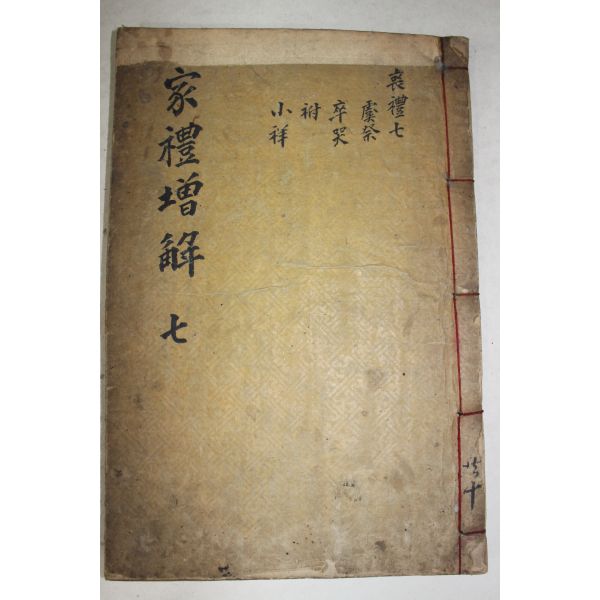 喪禮七
虞祭
卒哭
祔
小祥
家禮增解 七
共十